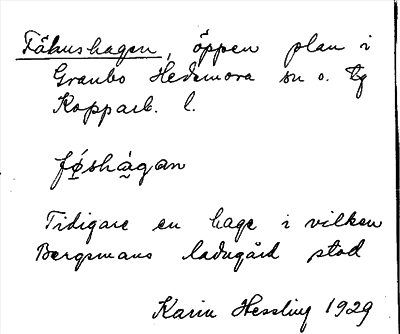 Fähushagen, öppen plan i
Granbo Hedemora sn o. tg
Kopparb. l.
føshågan
Tidigare en hage i vilken
Bergsmans ladugård stod
Karin Hessling 1929